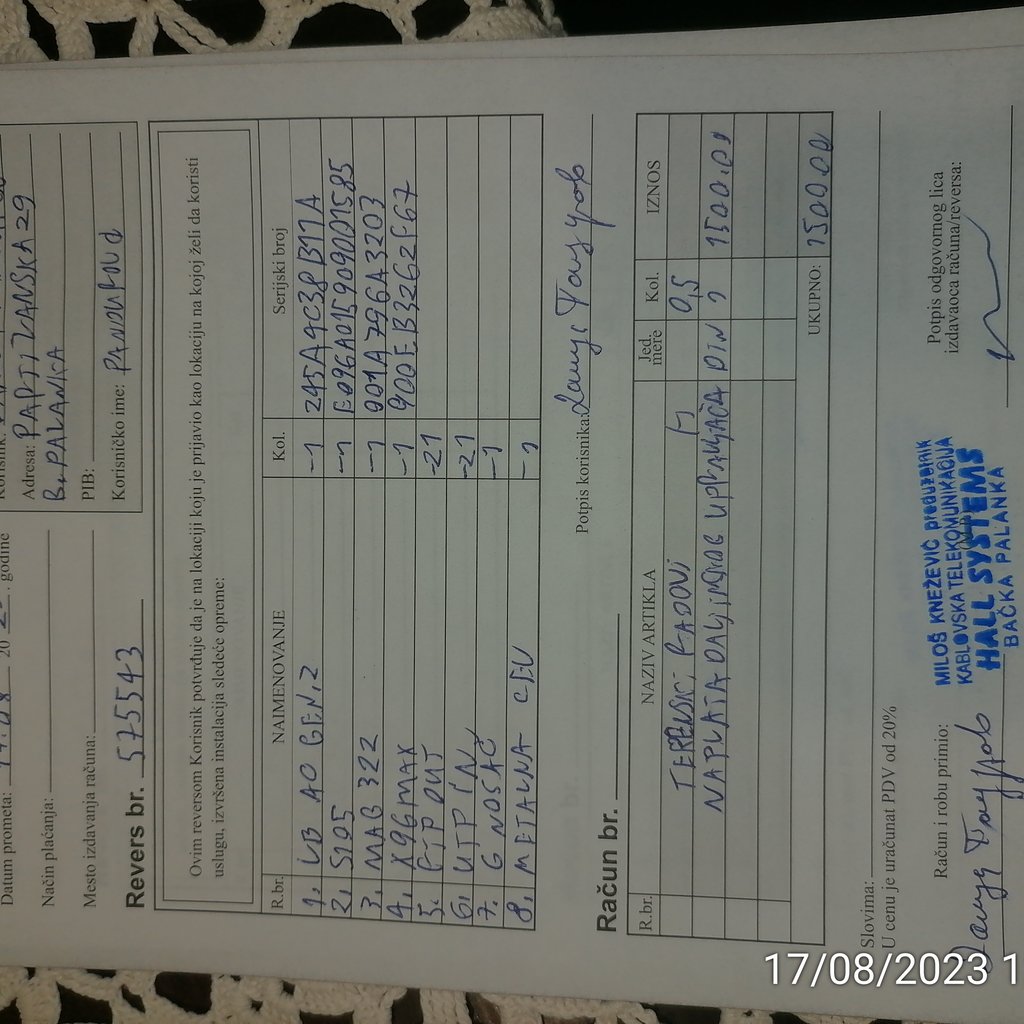 Datum prometa: 20 . godine
Način plaćanja:
Mesto izdavanja računa:
Adresa: PARTIZANSKA 29
B. PALANKA
PIB:
Korisničko ime:
Revers br. 575543
Ovim reversom Korisnik potvrđuje da je na lokaciji koju je prijavio kao lokaciju na kojoj želi da koristi
uslugu, izvršena instalacija sledeće opreme:
R.br. NAIMENOVANJE Kol. Serijski broj
1. LB AC GEN.2 -1 245A4C38B171A
2. S105 -1 E096A015909001585
3. MAG 322 -1 001A796A3203
4. X96 MAX -1 900EB3262F67
5. FTP OUT -21
6. UTP IN -21
7. G NOSAČ -1
8. METALNA CEV -1
Potpis korisnika:
Račun br.
R.br. NAZIV ARTIKLA Jed. mere Kol. IZNOS
TERENSKI RADOVI H 0,5
NAPLATA DALJINSKOG UPRAVLJAČA DIN 1 1500.00
UKUPNO: 1500.00
Slovima:
U cenu je uračunat PDV od 20%
Račun i robu primio:
MILOŠ KNEŽEVIĆ preduzetnik
KABLOVSKA TELEKOMUNIKACIJA
HALL SYSTEMS
BAČKA PALANKA
Potpis odgovornog lica
izdavaoca računa/reversa:
17/08/2023 1